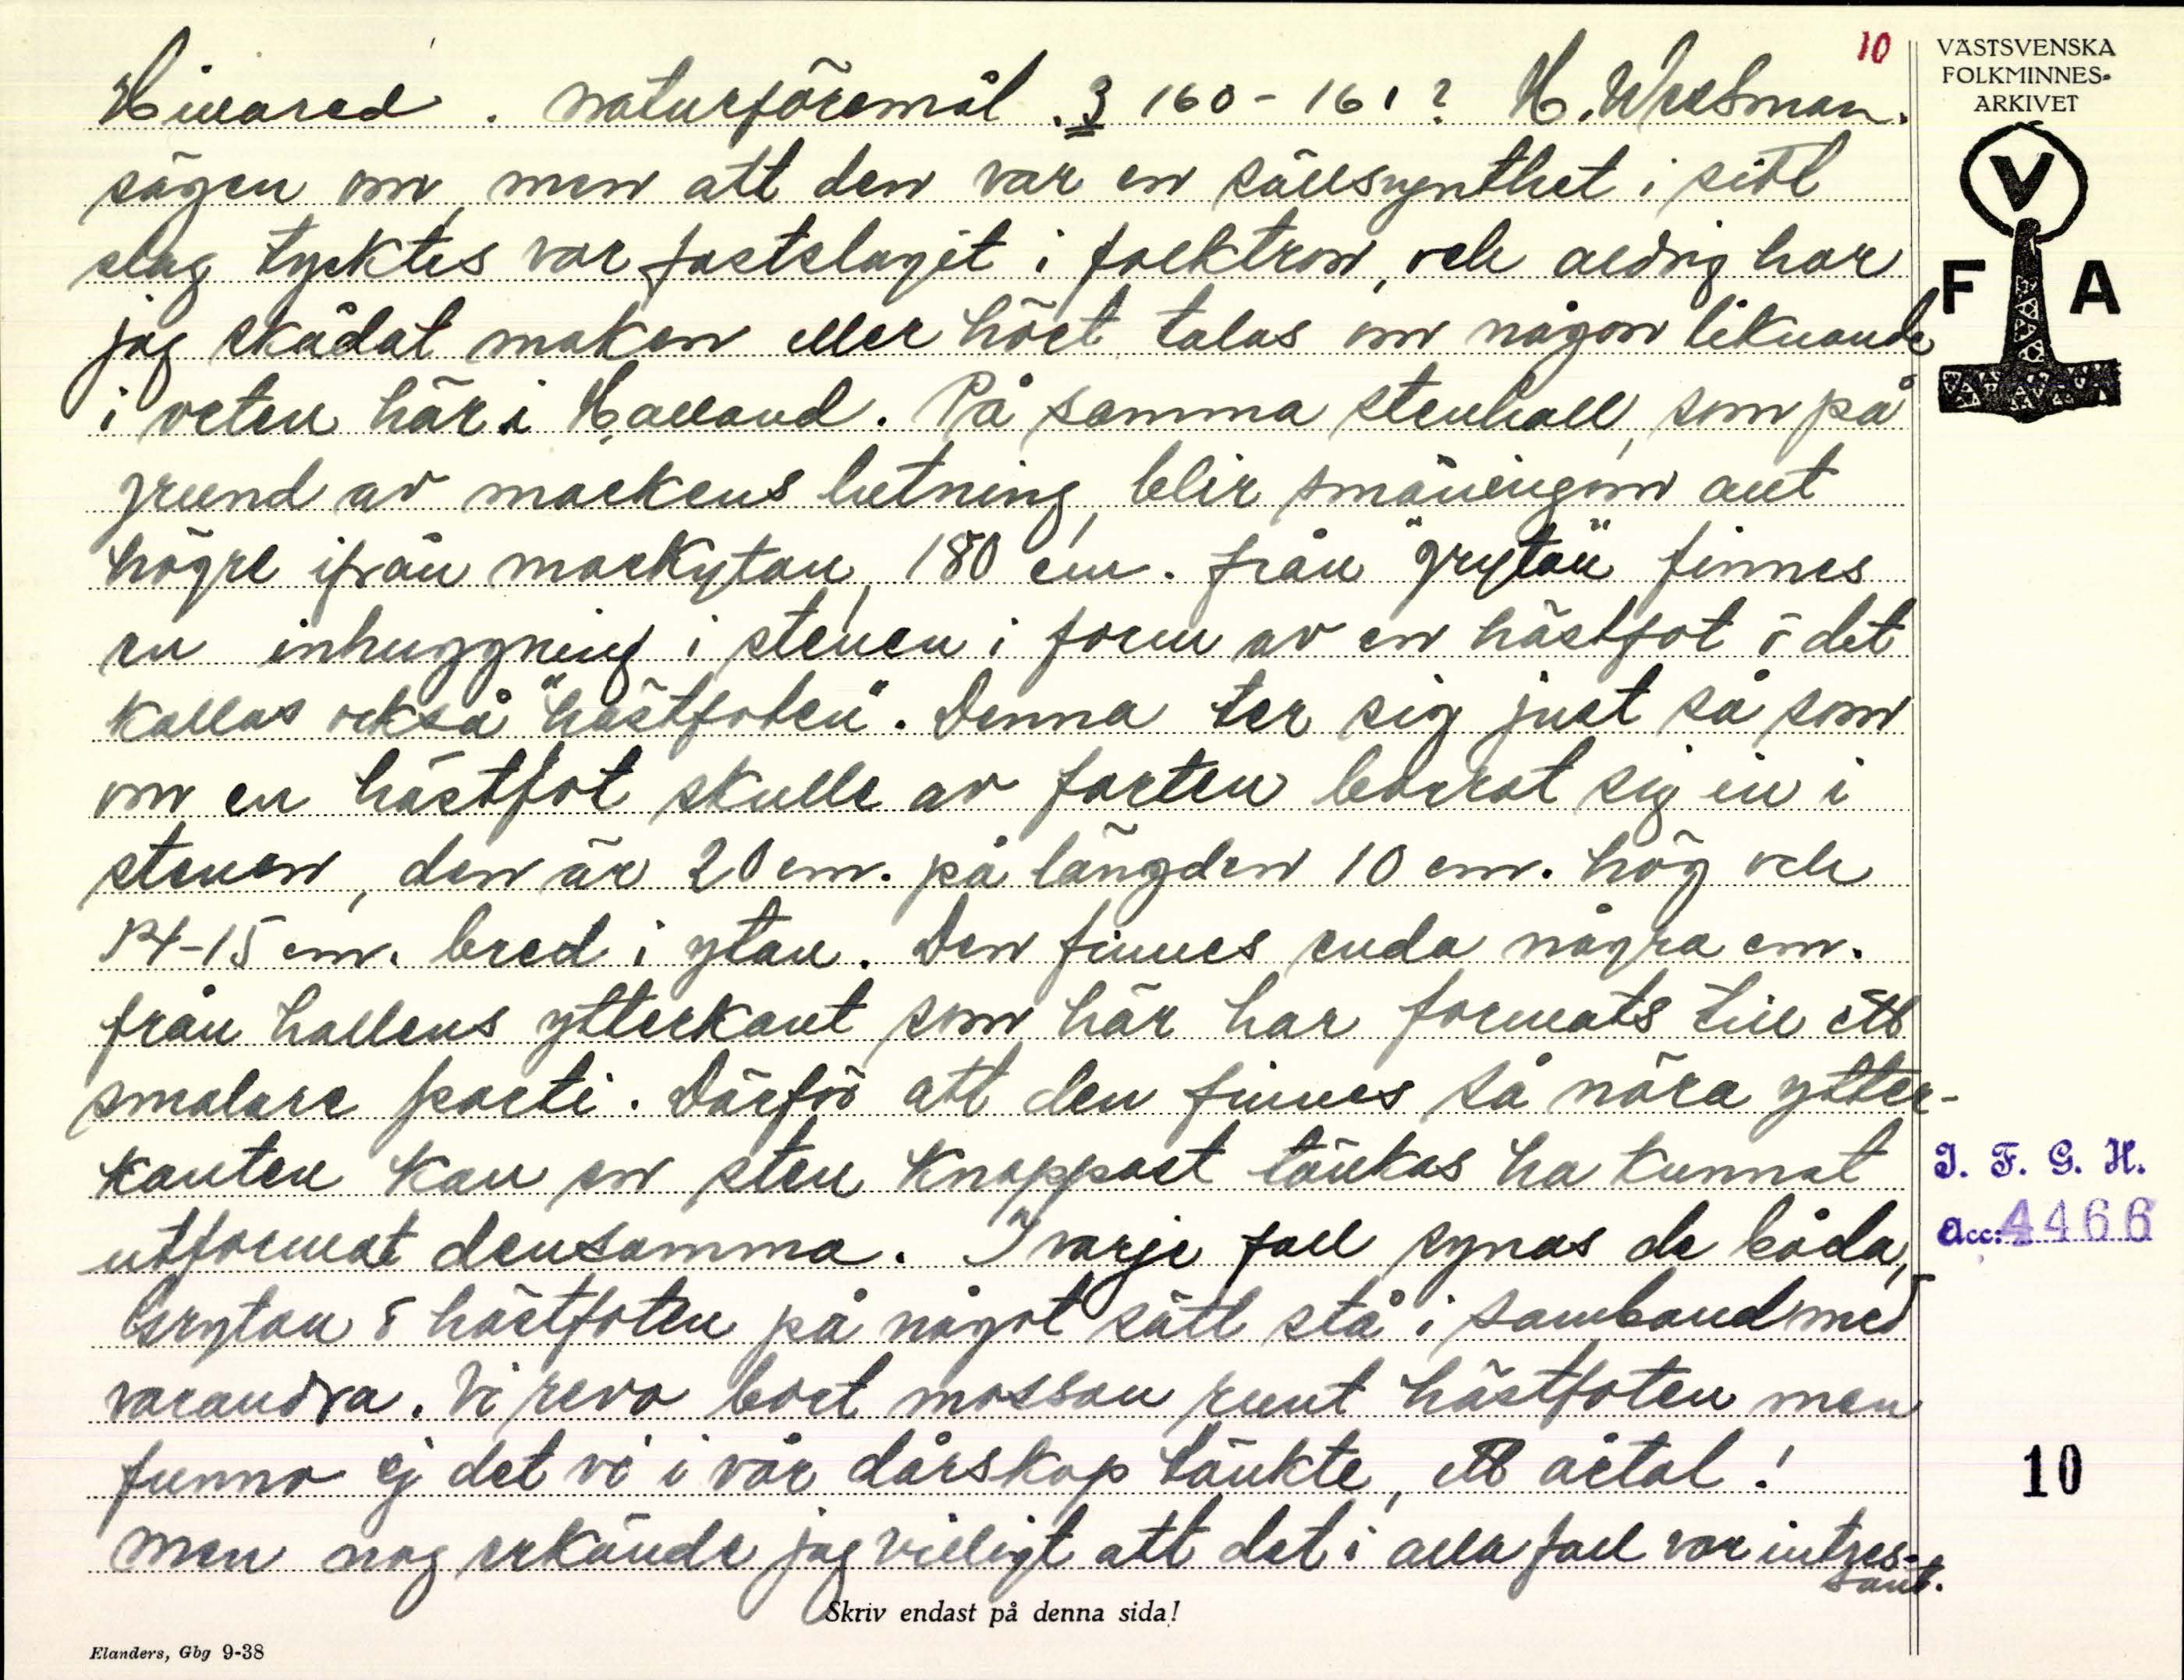 10
Hillared. Naturföremål. 3 160-161? H. Wessman.
sägen om, men att den var en sällsynthet i sitt
slag tycktes var fastslaget i folktron, och aldrig har
jag skådat maken eller hört talas om någon liknande
i veten här i Halland. På samma stenhall, som på
grund av markens lutning, blir småningom allt
högre ifrån markytan, 180 cm. från "grytan" finnes
en inhuggning i stenen i form av en hästfot o det
kallas också "hästfoten". Denna ter sig just så som
om en hästfot skulle av farten borrat sig in i
stenen, den är 20 cm. på längden 10 cm. hög och
14-15 cm. bred i ytan. Den finnes enda några cm.
från hallens ytterkant som här har formats till ett
smalare parti. Därför att den finnes så nära ytter-
kanten kan en sten knappast tänkas ha kunnat
utformat densamma. I varje fall synas de båda,
Grytan o hästfoten på något sätt stå i samband med
varandra. Vi revo bort mossan runt hästfoten men
funno ej det vi i vår dårskap tänkte, ett årtal!
Men nog erkände jag villigt att det i alla fall var intres-
sant.
Skriv endast på denna sida!
Elanders, Gbg 9-38
VÄSTSVENSKA
FOLKMINNES-
ARKIVET
V
F A
I. F. G. H.
Acc: 4466
10